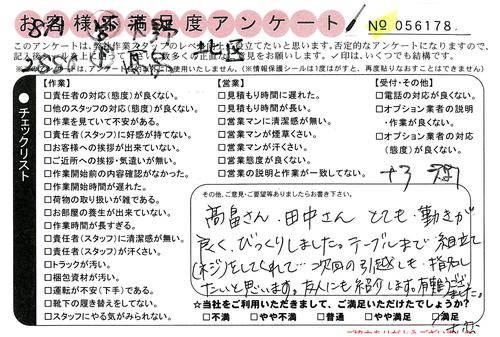 お客様不満足度アンケート
№ 056178
このアンケートは、弊社作業スタッフのレベル向上に役立てたいと思います。否定的なアンケートになりますので、
チェックリスト
【作業】
□責任者の対応(態度)が良くない。
□他のスタッフの対応(態度)が良くない。
□作業を見ていて不安がある。
□責任者(スタッフ)に好感が持てない。
□お客様への挨拶が出来ていない。
□ご近所への挨拶・気遣いが無い。
□作業開始前の内容確認がなかった。
□作業開始時間が遅れた。
□荷物の取り扱いが雑である。
□お部屋の養生が出来ていない。
□作業時間が長すぎる。
□責任者(スタッフ)に清潔感が無い。
□責任者(スタッフ)が汗くさい。
□トラックが汚い。
□梱包資材が汚い。
□運転が不安(下手)である。
□靴下の履き替えをしてない。
□スタッフにやる気がみられない。
【営業】
□見積もり時間に遅れた。
□見積もり時間が長い。
□営業マンに清潔感が無い。
□営業マンが煙草くさい。
□営業マンが汗くさい。
□営業態度が良くない。
□営業の説明と作業が一致してない。
【受付・その他】
□電話の対応が良くない。
□オプション業者の説明
・作業が良くない。
□オプション業者の対応
(態度)が良くない。
その他、ご意見・ご要望等ありましたらお書き下さい。
高畠さん・田中さん とても・動きが
良く、びっくりしました。テーブルまで組立て
(ネジ)をしてくれて…次回の引越しも・指名し
たいと思います。友人にも紹介します。有難うござ
いました。
☆当社をご利用いただきまして、ご満足いただけたでしょうか?
□不満 □やや不満 □普通 □やや満足 □満足